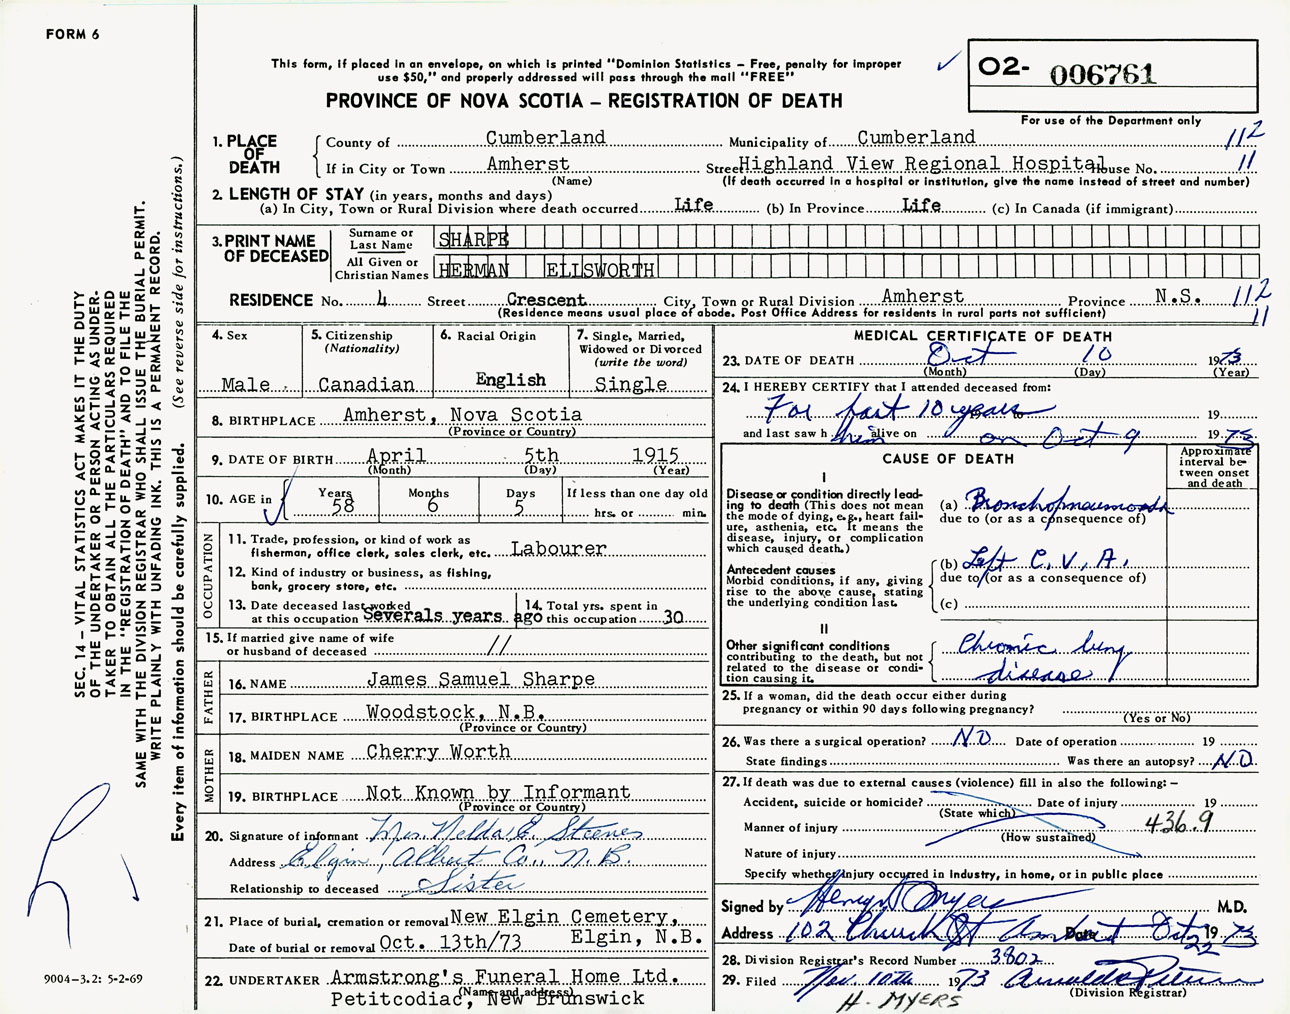 FORM 6
This form, if placed in an envelope, on which is printed "Dominion Statistics – Free, penalty for improper
use $50," and properly addressed will pass through the mail "FREE"
PROVINCE OF NOVA SCOTIA – REGISTRATION OF DEATH
O2- 006761
For use of the Department only
1. PLACE OF DEATH
County of Cumberland Municipality of Cumberland 112
If in City or Town Amherst Street Highland View Regional Hospital House No. 11
(Name) (If death occurred in a hospital or institution, give the name instead of street and number)
2. LENGTH OF STAY (in years, months and days)
(a) In City, Town or Rural Division where death occurred Life (b) In Province Life (c) In Canada (if immigrant)
3. PRINT NAME OF DECEASED
Surname or Last Name SHARPE
All Given or Christian Names HERMAN ELLSWORTH
RESIDENCE No. 4 Street Crescent City, Town or Rural Division Amherst Province N.S. 112
(Residence means usual place of abode. Post Office Address for residents in rural parts not sufficient) 11
4. Sex
Male
5. Citizenship
(Nationality)
Canadian
6. Racial Origin
English
7. Single, Married,
Widowed or Divorced
(write the word)
Single
8. BIRTHPLACE Amherst, Nova Scotia
(Province or Country)
9. DATE OF BIRTH April 5th 1915
(Month) (Day) (Year)
10. AGE in
Years Months Days If less than one day old
58 6 5 hrs. or min.
OCCUPATION
11. Trade, profession, or kind of work as
fisherman, office clerk, sales clerk, etc. Labourer
12. Kind of industry or business, as fishing,
bank, grocery store, etc.
13. Date deceased last worked
at this occupation Severals years ago
14. Total yrs. spent in
this occupation 30
15. If married give name of wife
or husband of deceased //
FATHER
16. NAME James Samuel Sharpe
17. BIRTHPLACE Woodstock, N.B.
(Province or Country)
MOTHER
18. MAIDEN NAME Cherry Worth
19. BIRTHPLACE Not Known by Informant
(Province or Country)
20. Signature of informant Mrs. Nelda E. Steeves
Address Elgin, Albert Co., N.B.
Relationship to deceased Sister
21. Place of burial, cremation or removal New Elgin Cemetery,
Date of burial or removal Oct. 13th/73 Elgin, N.B.
22. UNDERTAKER Armstrong's Funeral Home Ltd.
(Name and address)
Petitcodiac, New Brunswick
MEDICAL CERTIFICATE OF DEATH
23. DATE OF DEATH Oct 10 1973
(Month) (Day) (Year)
24. I HEREBY CERTIFY that I attended deceased from:
For past 10 years to 19
and last saw h him alive on on Oct 9 1973
CAUSE OF DEATH
Approximate
interval be-
tween onset
and death
I
Disease or condition directly lead-
ing to death (This does not mean
the mode of dying, e.g., heart fail-
ure, asthenia, etc. It means the
disease, injury, or complication
which caused death.)
(a) Bronchopneumonia
due to (or as a consequence of)
Antecedent causes
Morbid conditions, if any, giving
rise to the above cause, stating
the underlying condition last.
(b) Left C.V.A.
due to (or as a consequence of)
(c)
II
Other significant conditions
contributing to the death, but not
related to the disease or condi-
tion causing it.
Chronic lung
disease
25. If a woman, did the death occur either during
pregnancy or within 90 days following pregnancy?
(Yes or No)
26. Was there a surgical operation? NO Date of operation 19
State findings Was there an autopsy? NO
27. If death was due to external causes (violence) fill in also the following: –
Accident, suicide or homicide? Date of injury 19
(State which)
Manner of injury 436.9
(How sustained)
Nature of injury
Specify whether injury occurred in industry, in home, or in public place
Signed by Henry Myers M.D.
Address 102 Church St Amherst Date Oct 22 1973
28. Division Registrar's Record Number 3802
29. Filed Nov. 10th 1973
(Division Registrar)
H. MYERS
SEC. 14 – VITAL STATISTICS ACT MAKES IT THE DUTY
OF THE UNDERTAKER OR PERSON ACTING AS UNDER-
TAKER TO OBTAIN ALL THE PARTICULARS REQUIRED
IN THE "REGISTRATION OF DEATH" AND TO FILE THE
SAME WITH THE DIVISION REGISTRAR WHO SHALL ISSUE THE BURIAL PERMIT.
WRITE PLAINLY WITH UNFADING INK. THIS IS A PERMANENT RECORD.
Every item of information should be carefully supplied. (See reverse side for instructions.)
9004–3.2: 5-2-69